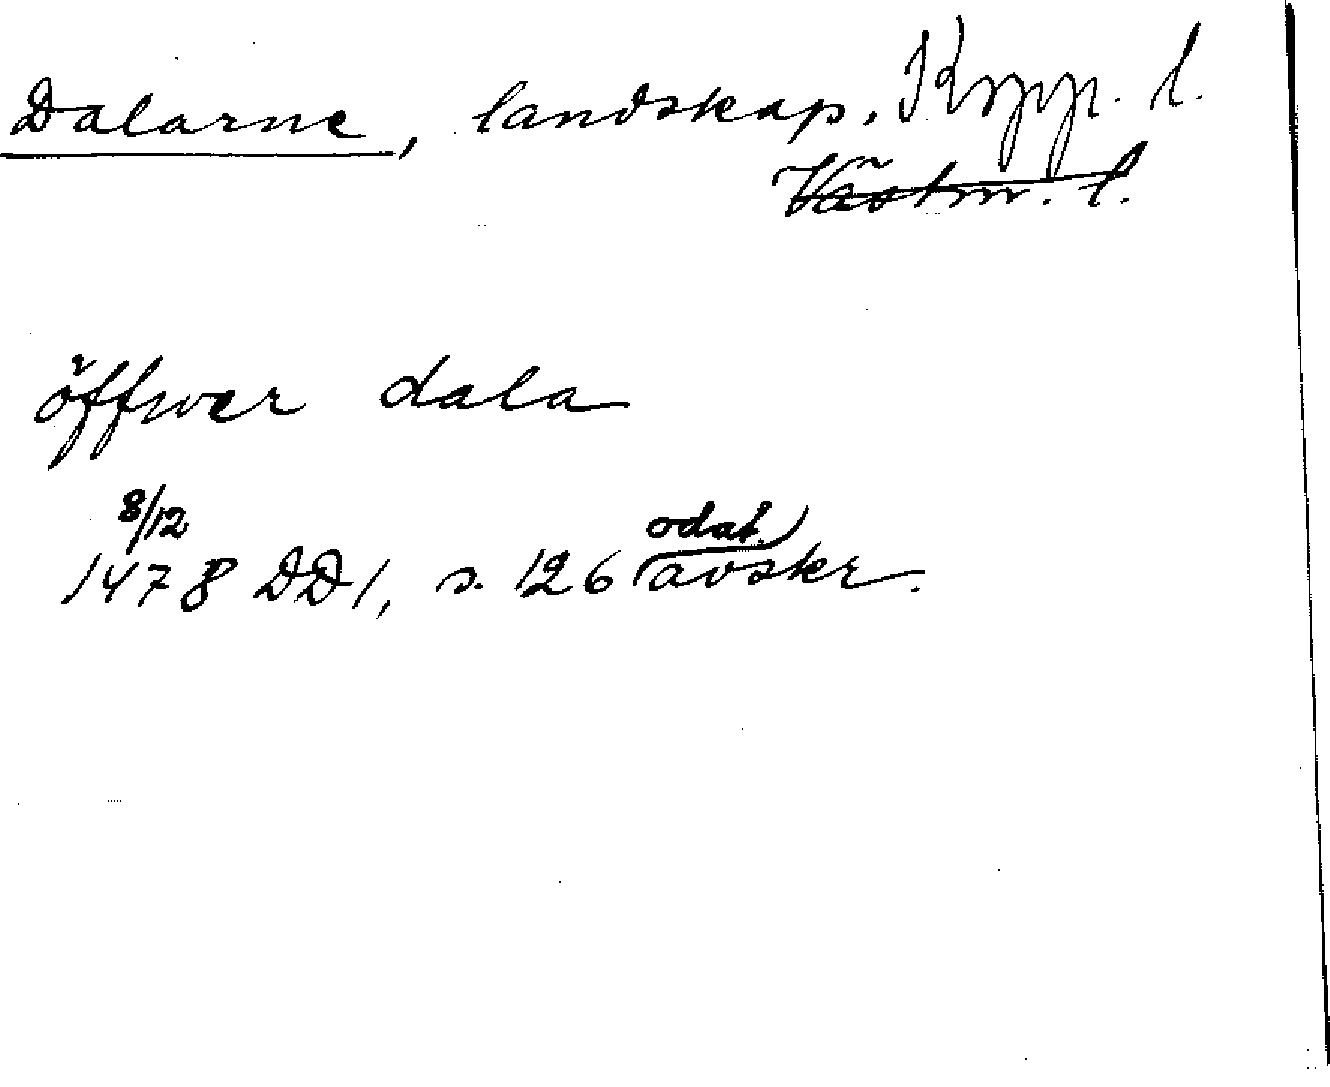 Dalarne, landskap. Kopp. l.
Västm. l.
öffwer dala
8/12
1478 DD1, s. 126 (odat.) avskr.